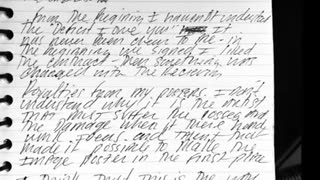 from the Begining I haven't understood
the Deceit I give you It
has never been clear to me - in
the beginning we signed I liked
the contract - then something was
changed with the Receiving
Royalties from my posters. I don't
understand why it is the artist
that must suffer the losses and
the Damage when it there hand
made it possible to make the
Image poster in the first place
this is the way